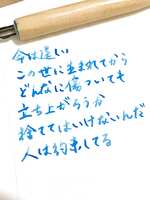 今は遠い
この世に生まれてから
どんなに傷ついても
立ち上がろうか
捨ててはいけないんだ
人は約束してる